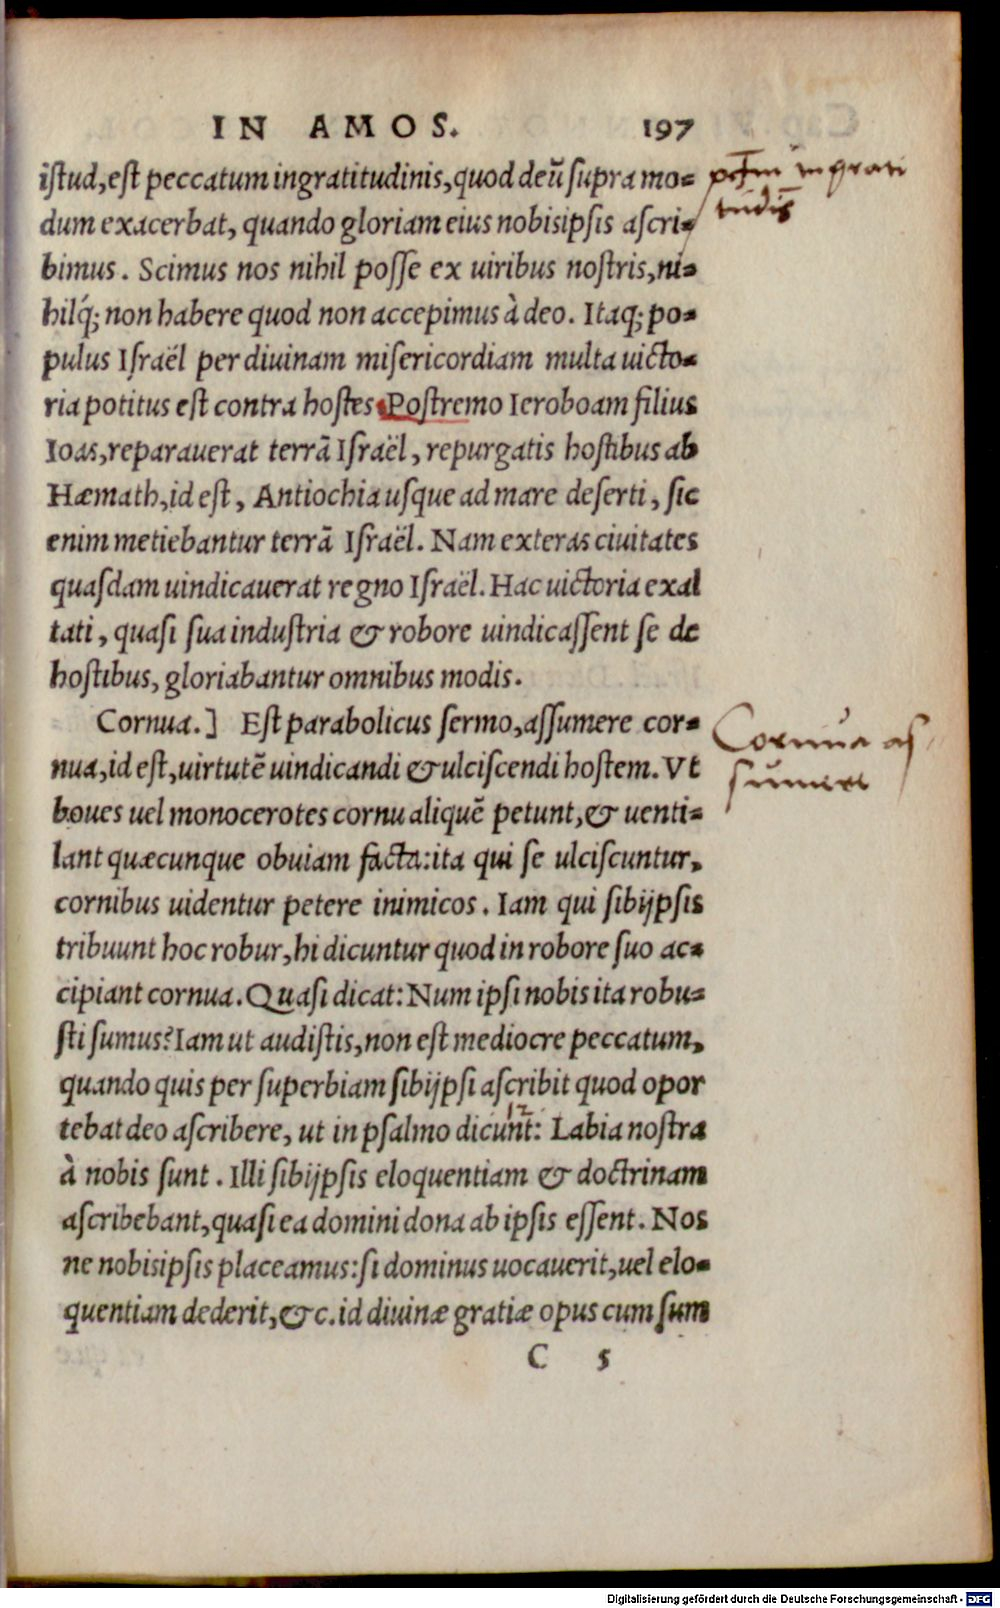 IN AMOS. 197
istud, est peccatum ingratitudinis, quod deū supra mo=
dum exacerbat, quando gloriam eius nobisipsis ascri=
bimus. Scimus nos nihil posse ex uiribus nostris, ni=
hilq́; non habere quod non accepimus à deo. Itaq; po=
pulus Israël per diuinam misericordiam multa uicto=
ria potitus est contra hostes. Postremo Ieroboam filius
Ioas, reparauerat terrā Israël, repurgatis hostibus ab
Hæmath, id est, Antiochia usque ad mare deserti, sic
enim metiebantur terrā Israël. Nam exteras ciuitates
quasdam uindicauerat regno Israël. Hac uictoria exal
tati, quasi sua industria & robore uindicassent se de
hostibus, gloriabantur omnibus modis.
Cornua.] Est parabolicus sermo, assumere cor=
nua, id est, uirtutē uindicandi & ulciscendi hostem. Vt
boues uel monocerotes cornu aliquē petunt, & uenti=
lant quæcunque obuiam facta: ita qui se ulciscuntur,
cornibus uidentur petere inimicos. Iam qui sibijpsis
tribuunt hoc robur, hi dicuntur quod in robore suo ac=
cipiant cornua. Quasi dicat: Num ipsi nobis ita robu=
sti sumus? Iam ut audistis, non est mediocre peccatum,
quando quis per superbiam sibijpsi ascribit quod opor
tebat deo ascribere, ut in psalmo dicunt: Labia nostra
12
à nobis sunt. Illi sibijpsis eloquentiam & doctrinam
ascribebant, quasi ea domini dona ab ipsis essent. Nos
ne nobisipsis placeamus: si dominus uocauerit, uel elo=
quentiam dederit, &c. id diuinæ gratiæ opus cum sum
C 5
pctm ingrati
tudis
Cornua as
sumere
Digitalisierung gefördert durch die Deutsche Forschungsgemeinschaft - DFG